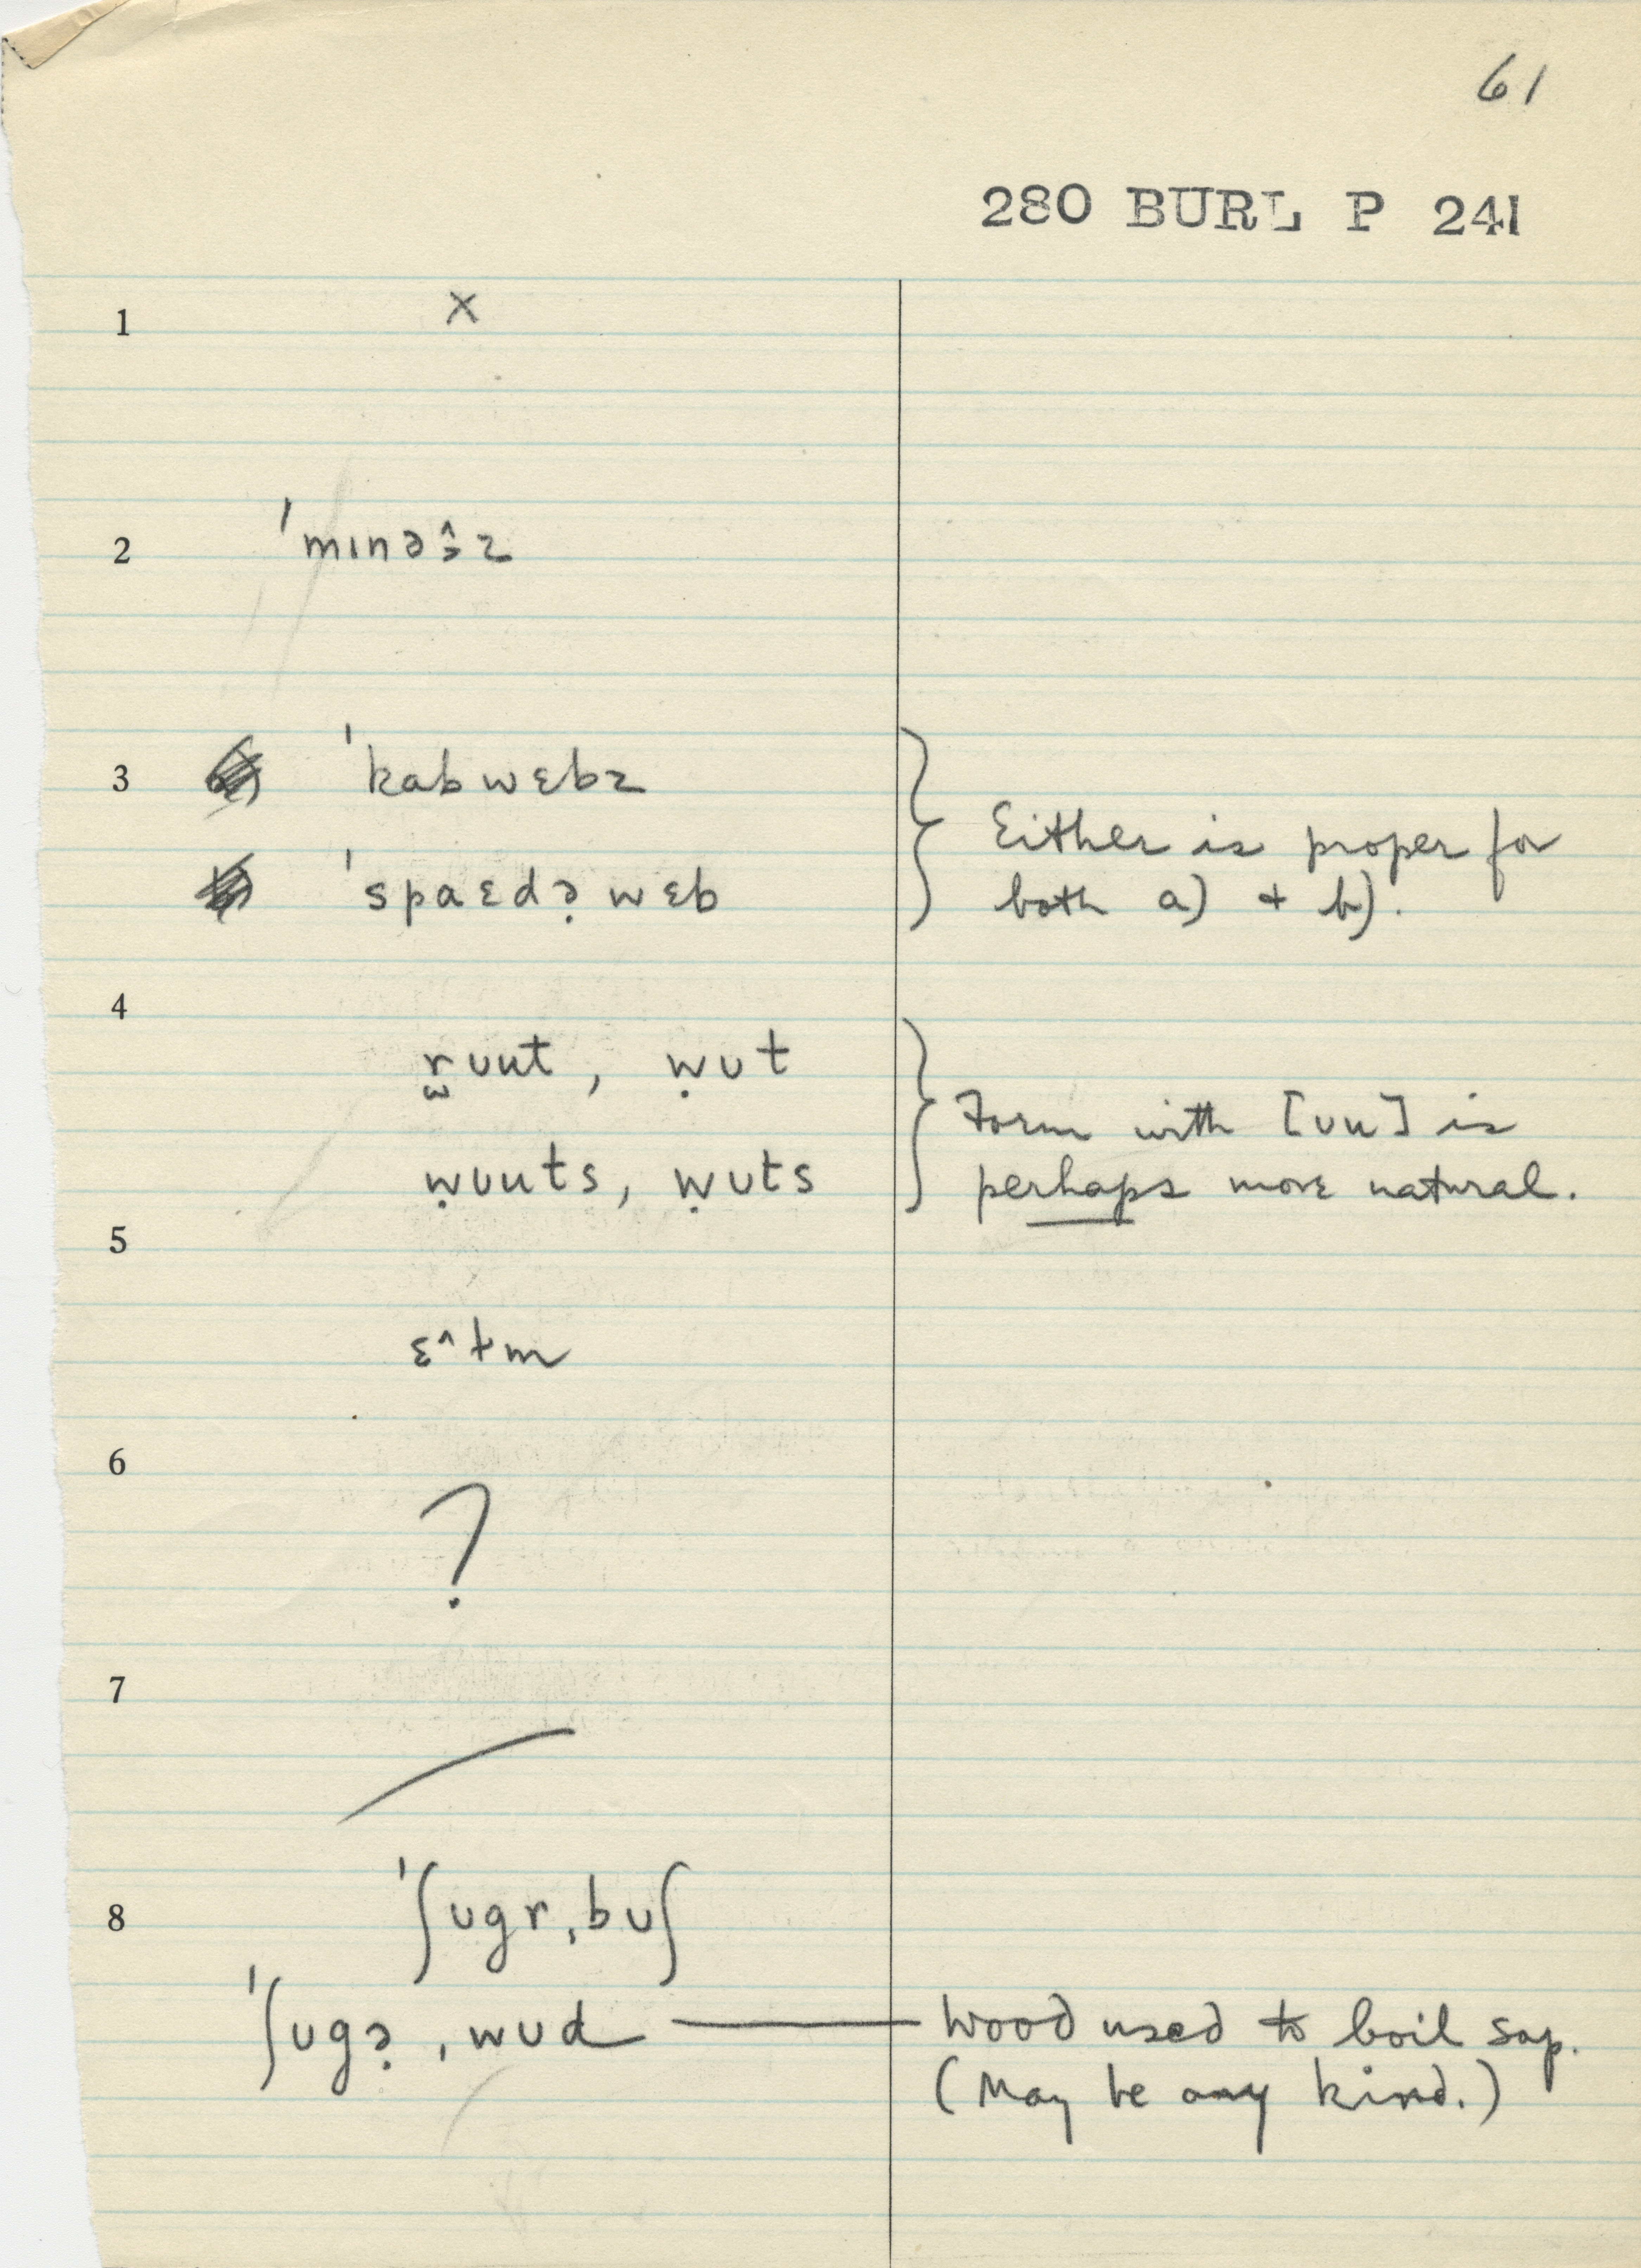 61
280 BURL P 241
1 x
2 ˈmɪnəɔ̭̂z
3 ˈkabwɛbz
ˈspaɛdə̣wɛb
Either is proper for
both a) + b).
4
r̫ʊut, ẉʊt
ẉʊuts, ẉʊts
Form with [ʊu] is
perhaps more natural.
5
ɛ^ɫm
6
?
7
8 ˈʃʊgrˌbʊʃ
ˈʃʊgə̣ˌwʊd — Wood used to boil sap.
(May be any kind.)